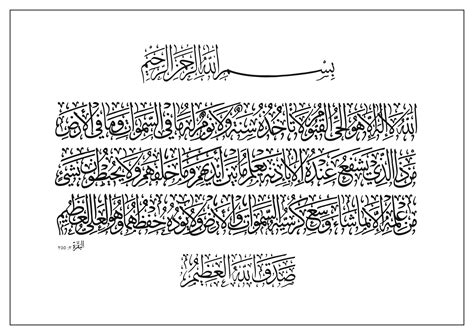 بِسْمِ اللَّهِ الرَّحْمَٰنِ الرَّحِيمِ
اللَّهُ لَا إِلَٰهَ إِلَّا هُوَ الْحَيُّ الْقَيُّومُ لَا تَأْخُذُهُ سِنَةٌ وَلَا نَوْمٌ لَهُ مَا فِي السَّمَاوَاتِ وَمَا فِي الْأَرْضِ
مَنْ ذَا الَّذِي يَشْفَعُ عِنْدَهُ إِلَّا بِإِذْنِهِ يَعْلَمُ مَا بَيْنَ أَيْدِيهِمْ وَمَا خَلْفَهُمْ وَلَا يُحِيطُونَ بِشَيْءٍ
مِنْ عِلْمِهِ إِلَّا بِمَا شَاءَ وَسِعَ كُرْسِيُّهُ السَّمَاوَاتِ وَالْأَرْضَ وَلَا يَئُودُهُ حِفْظُهُمَا وَهُوَ الْعَلِيُّ الْعَظِيمُ
البقرة ٢:٢٥٥
صَدَقَ اللَّهُ الْعَظِيمُ